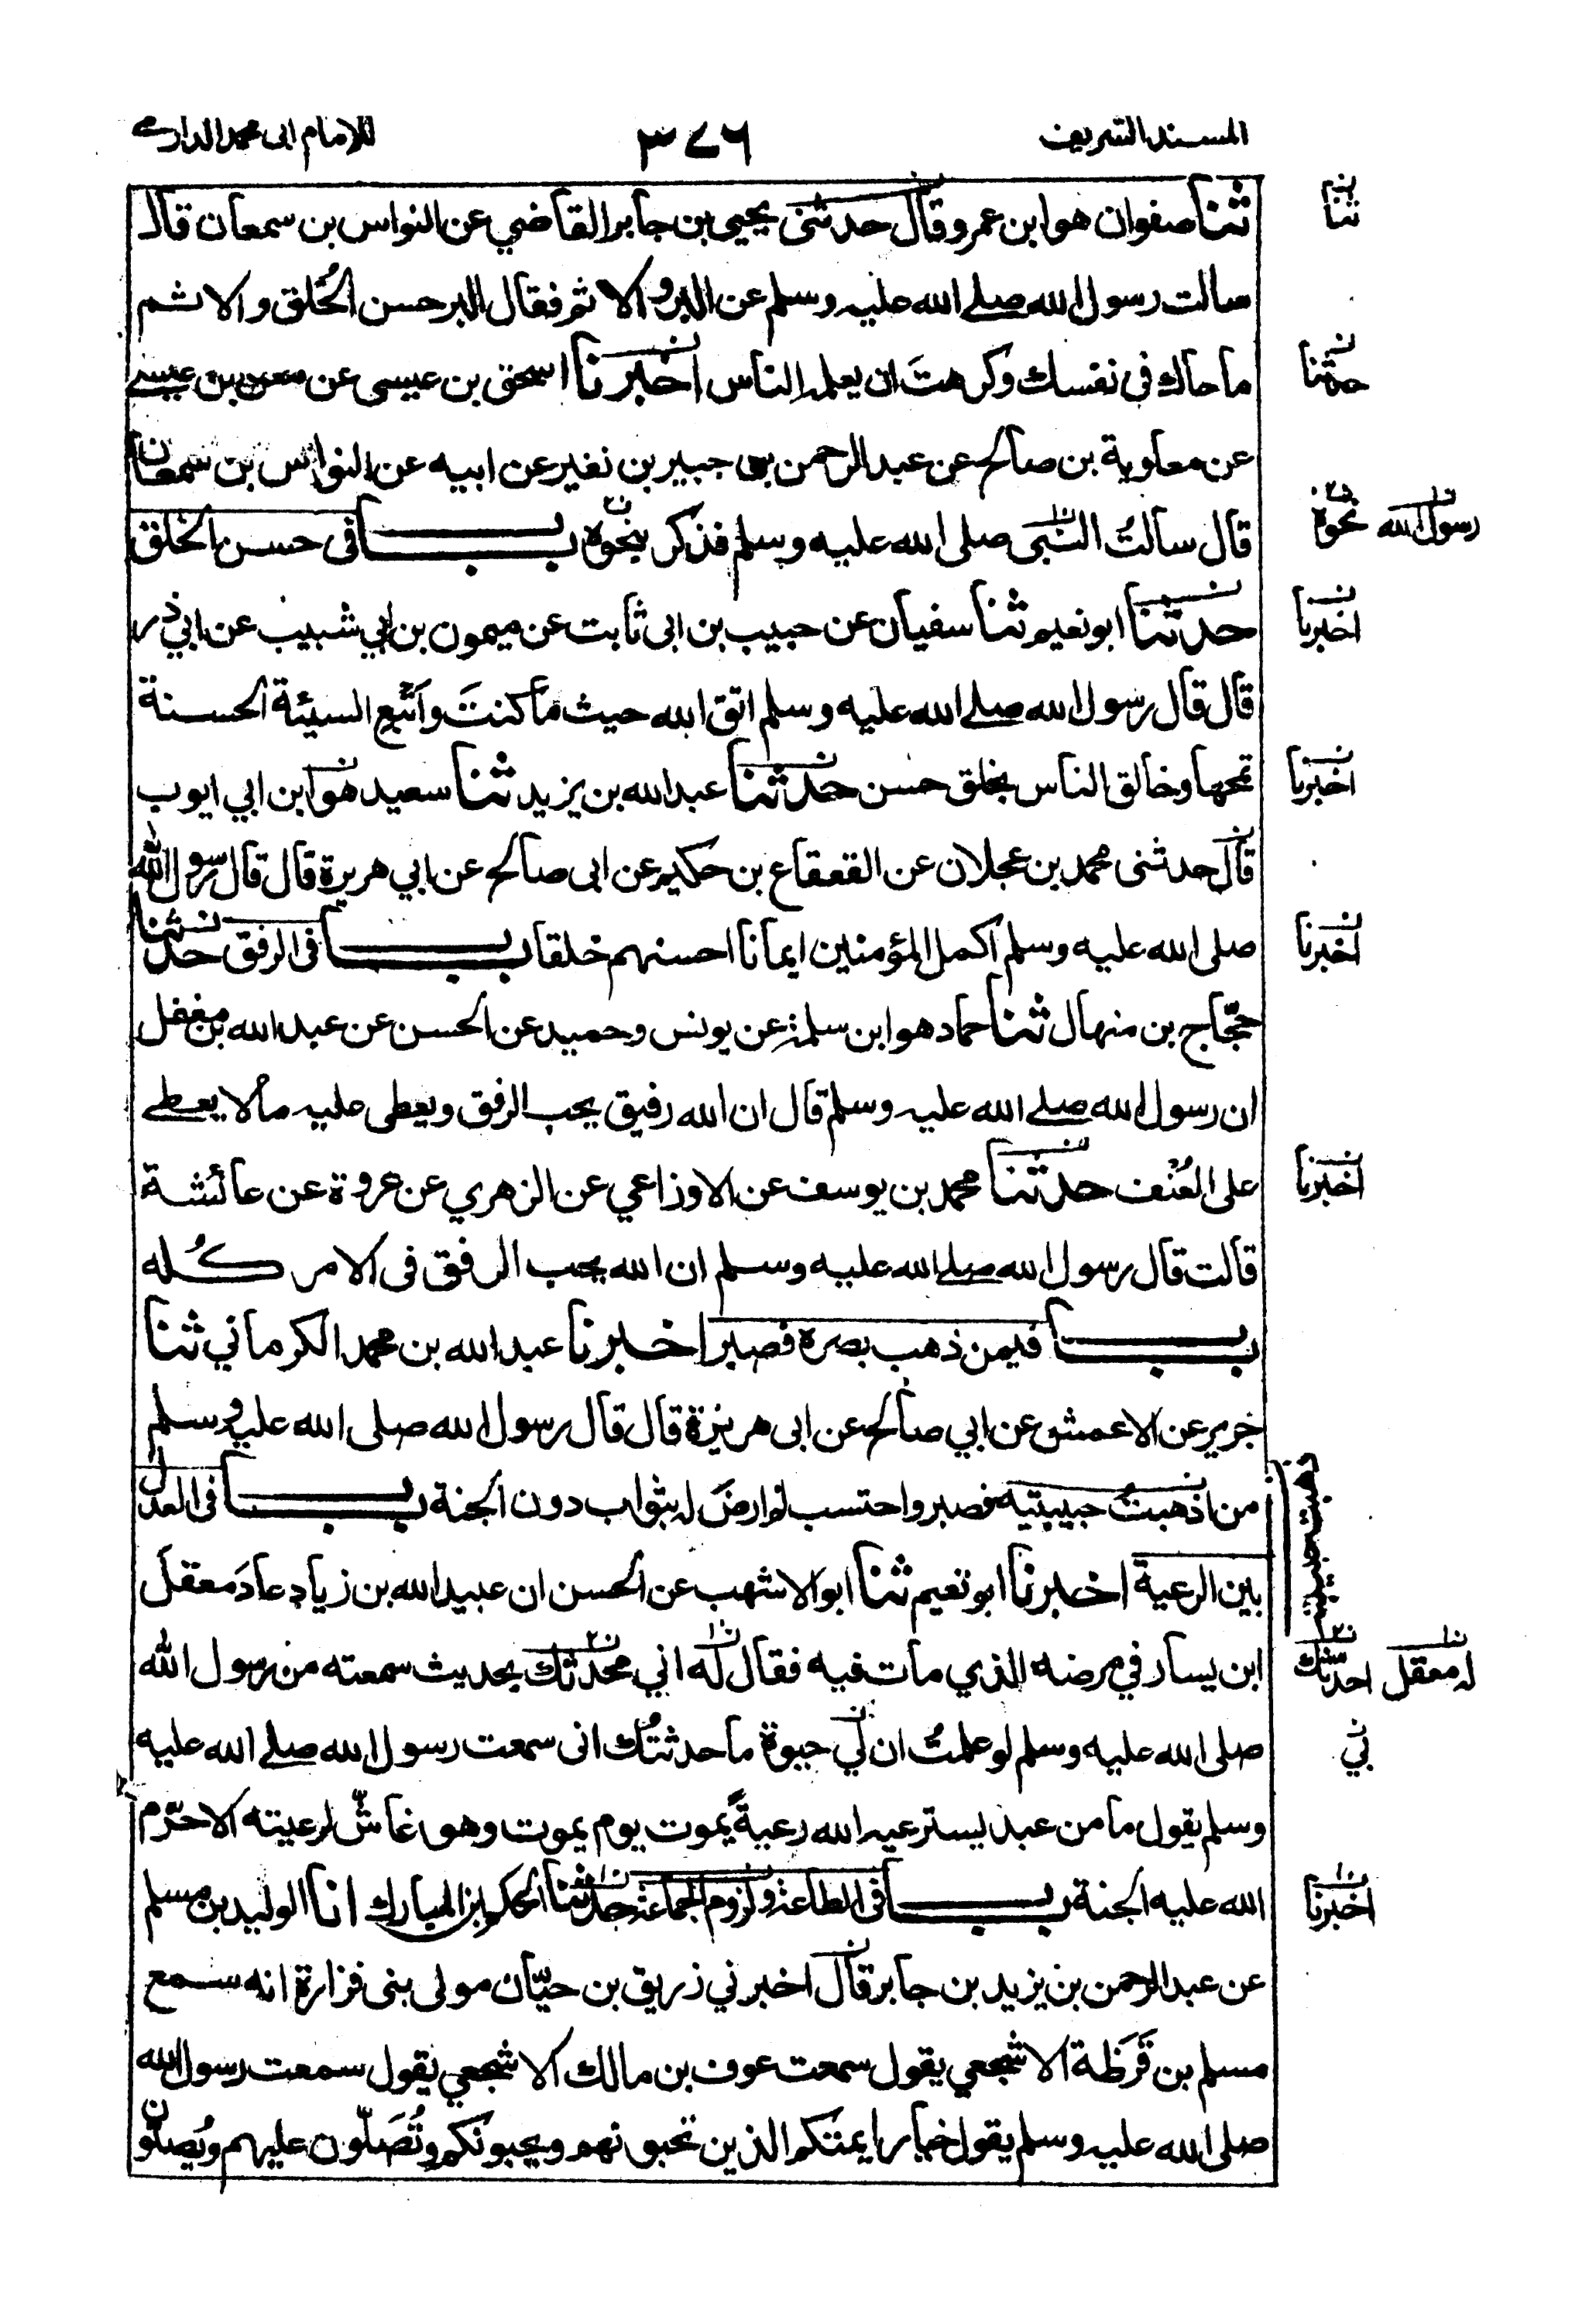 المسند الشريف ٣٧٦ للامام ابى محمد الدارمے
ثنا صفوان هو ابن عمرو قال حدثنى يحيى بن جابر القاضي عن النواس بن سمعان قال
سالت رسول الله صلے الله عليه وسلم عن البر و الاثم فقال البر حسن الخُلق و الاثم
ما حاك فى نفسك وكرهتَ ان يعلمه الناس اخبرنا اسحق بن عيسى عن معن بن عيسے
عن معاوية بن صالح عن عبد الرحمن بن جبير بن نفير عن ابيه عن النواس بن سمعان
قال سالتُ النبى صلى الله عليه وسلم فذكر بنحوه باب فى حسن الخلق
حدثنا ابو نعيم ثنا سفيان عن حبيب بن ابى ثابت عن ميمون بن ابي شبيب عن ابي ذر
قال قال رسول الله صلے الله عليه وسلم اتق الله حيث ما كنتَ وأتبع السيئة الحسنة
تمحها وخالق الناس بخلق حسن حدثنا عبد الله بن يزيد ثنا سعيد هو ابن ابي ايوب
قال حدثنى محمد بن عجلان عن القعقاع بن حكيم عن ابى صالح عن ابي هريرة قال قال رسول الله
صلى الله عليه وسلم اكمل المؤمنين ايمانا احسنهم خلقا باب فى الرفق حدثنا
حجّاج بن منهال ثنا حماد هو ابن سلمة عن يونس وحميد عن الحسن عن عبد الله بن مغفل
ان رسول الله صلے الله عليه وسلم قال ان الله رفيق يحب الرفق ويعطى عليه مالا يعطے
على العُنْف حدثنا محمد بن يوسف عن الاوزاعي عن الزهري عن عروة عن عائشة
قالت قال رسول الله صلے الله عليه وسلم ان الله يحب الرفق فى الامر كُله
باب فيمن ذهب بصره فصبر اخبرنا عبد الله بن محمد الكرماني ثنا
جرير عن الاعمش عن ابي صالح عن ابى هريرة قال قال رسول الله صلى الله عليه وسلم
من اذهبتُ حبيبتيه فصبر واحتسب لم ارضَ له بثواب دون الجنة باب فى العدل
بين الرعية اخبرنا ابو نعيم ثنا ابو الاشهب عن الحسن ان عبيد الله بن زياد عادَ معقل
ابن يسار في مرضه الذي مات فيه فقال له اني محدثك بحديث سمعته من رسول الله
صلى الله عليه وسلم لو علمتُ ان لي حيوة ما حدثتُك انى سمعت رسول الله صلے الله عليه
وسلم يقول ما من عبد يسترعيه الله رعيةً يموت يوم يموت وهو غاشٌّ لرعيته الا حرّم
الله عليه الجنة باب فى الطاعة ولزوم الجماعة حدثنا الحكم بن المبارك انا الوليد بن مسلم
عن عبد الرحمن بن يزيد بن جابر قال اخبرني زريق بن حيّان مولى بنى فزارة انه سمع
مسلم بن قَرَظة الاشجعي يقول سمعت عوف بن مالك الاشجعي يقول سمعت رسول الله
صلى الله عليه وسلم يقول خيار ايمتكم الذين تحبونهم ويحبونكم وتُصَلّون عليهم ويُصلّون
ثنا
حدثنا
رسول الله نحوه
اخبرنا
اخبرنا
اخبرنا
اخبرنا
له معقل احدثك
بي
اخبرنا